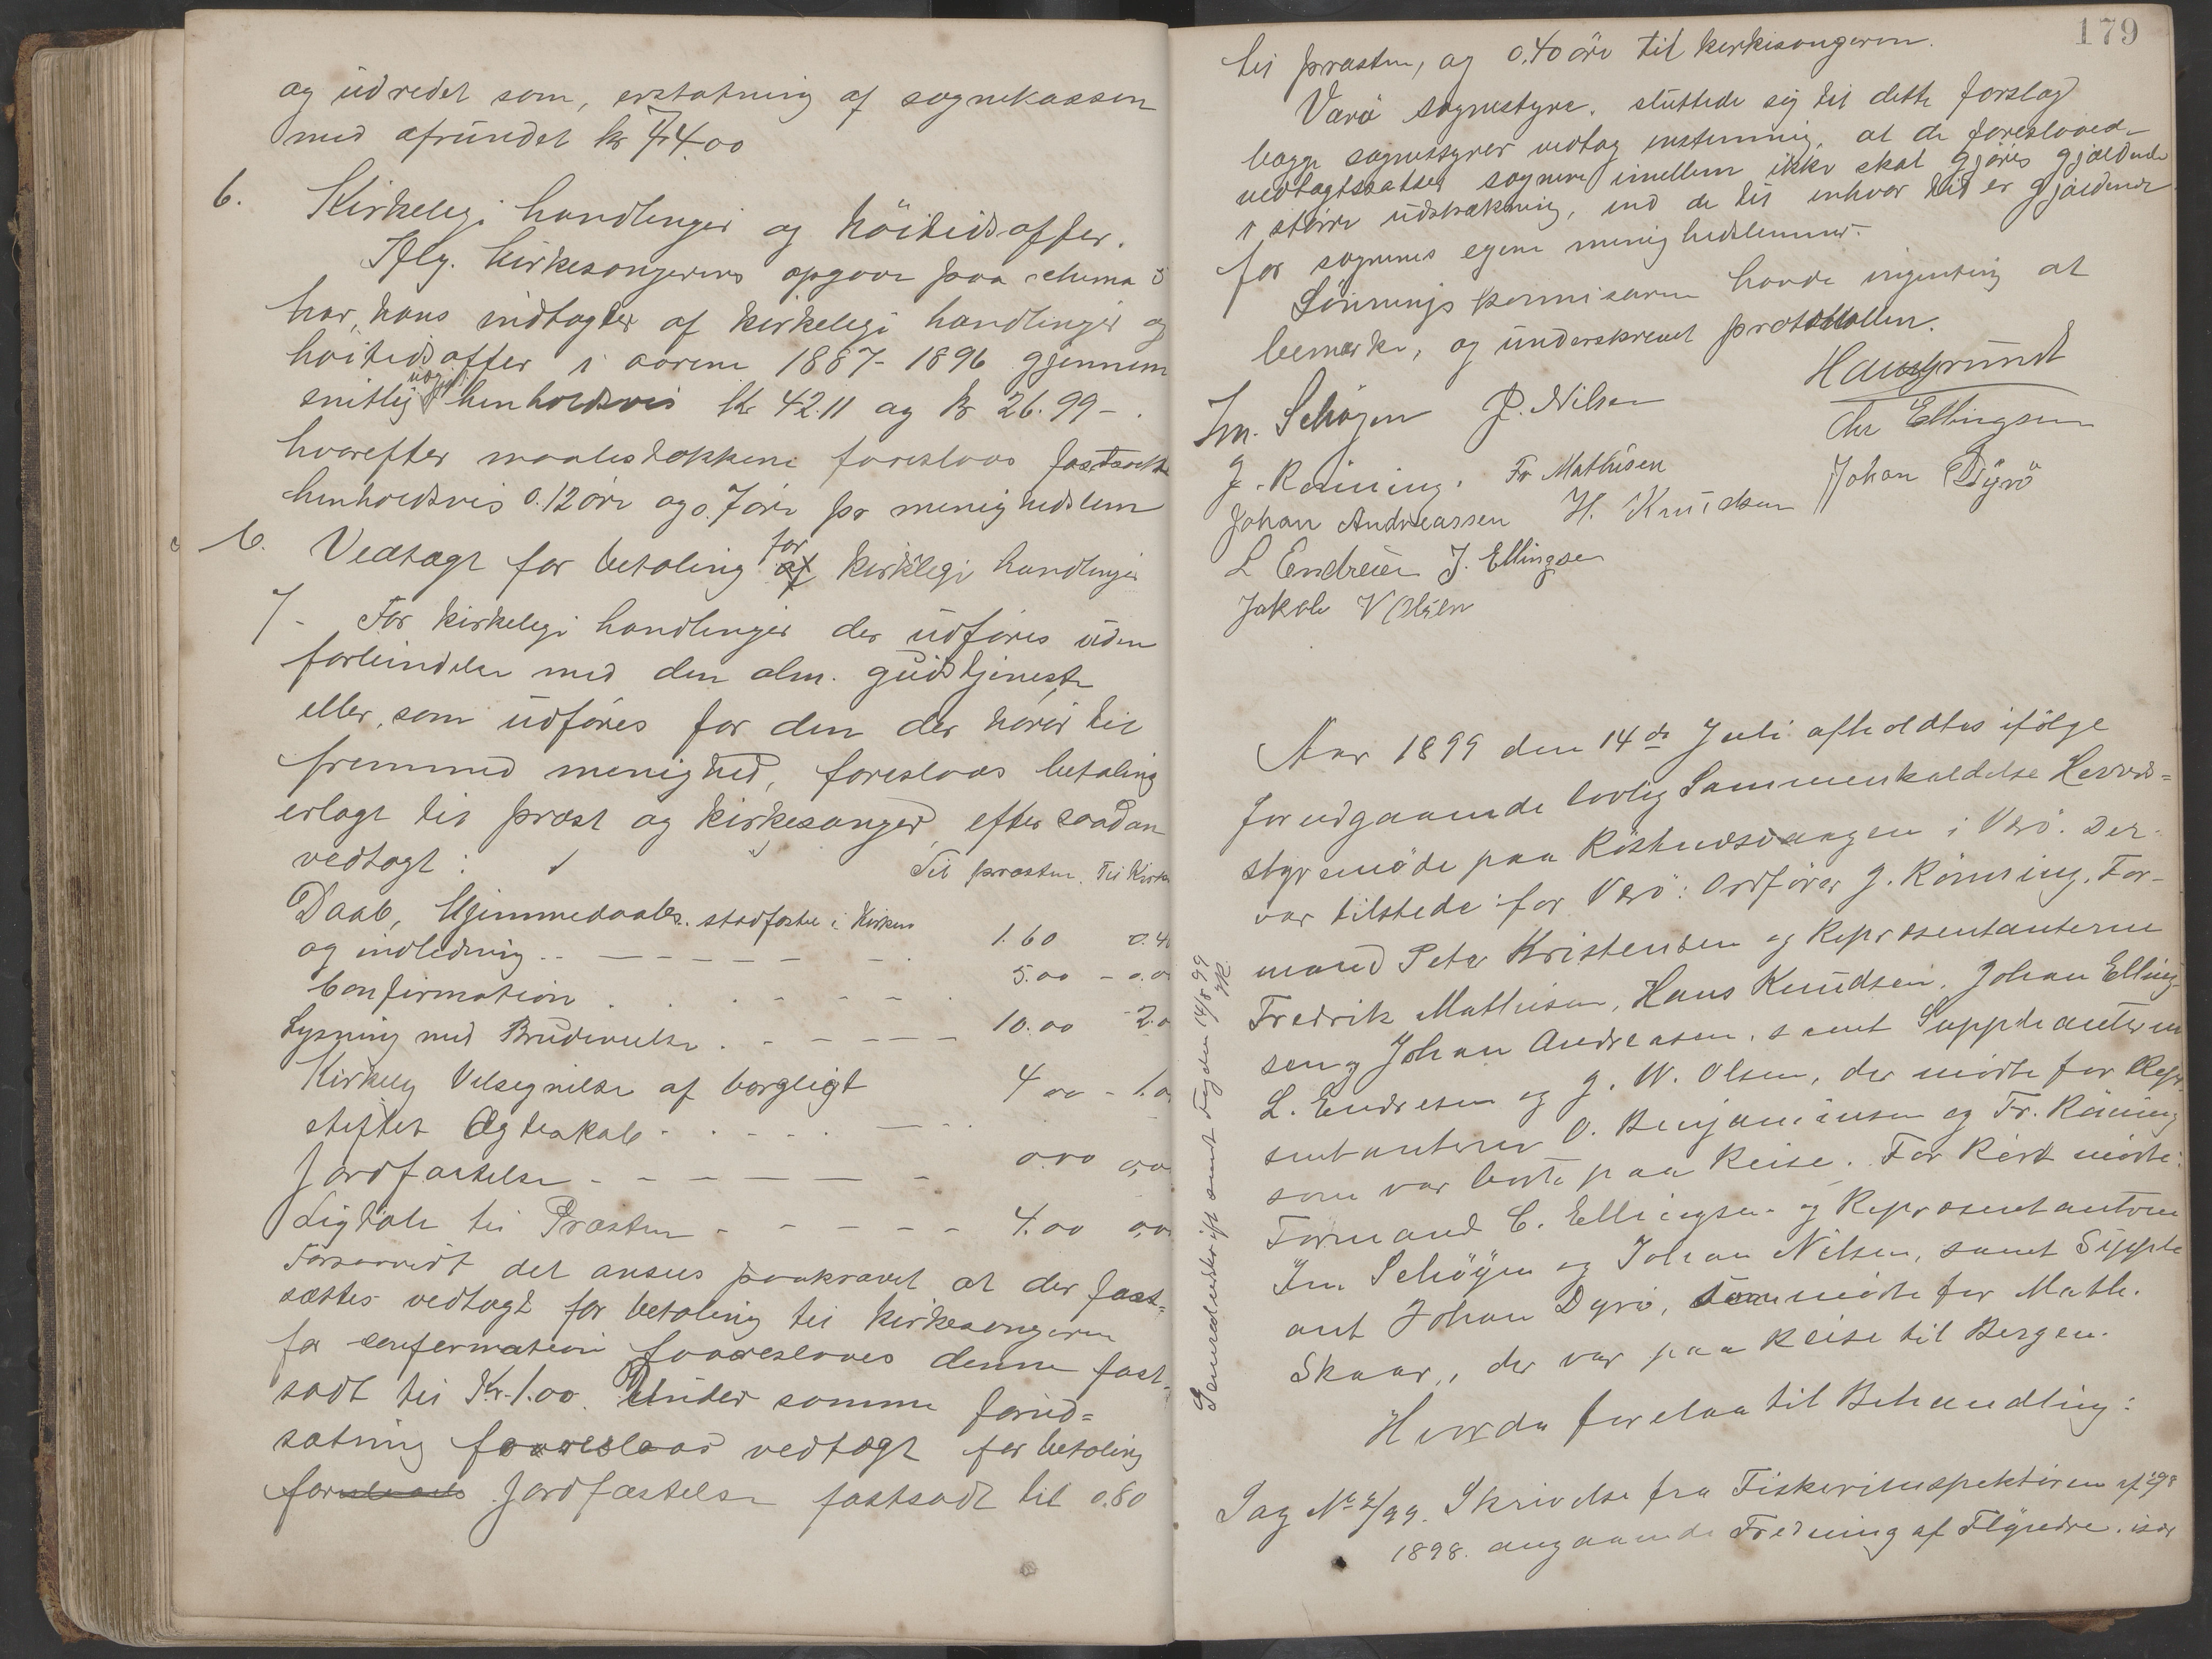 og udredet som, erstatning af sognekassen
med afrundet kr 44.00
6. Kirkelige handlinger og höitidsoffer.
Iflg. kirkesangerens opgave paa schema 5
har hans indtægter af kirkelige handlinger og
höitidsoffer i aarene 1887-1896 gjennem
snitlig udgjort henholdsvis kr 42.11 og kr 26.99-.
hvorefter maalestokkene foreslaaes fastsatte
henholdsvis 0.12 öre og 0.7 öre pr menighedslem
6. Vedtægt for betaling af for kirkelige handlinger
7- For kirkelige handlinger der udföres uden
forbindelse med den alm. gudstjeneste
eller, som udföres for den der hörer til
fremmed menighed, foreslaaes betaling
erlagt til præst og kirkesanger, efter saadan
vedtægt:
Til præsten. Til Kirke
Daab, Hjemmedaabs. stadfæstel i Kirken
og indledning 1.60 0.40
Confirmation 5.00 - 0.0
Lysning med Brudevielse 10.00 2.0
Kirkelig Velsignelse af borgerligt
stiftet Ægteskab 4.00 - 1.0
Jordfæstelse 0.00 0.00
Ligtale til Præsten 4.00 0.00
Forsaavidt det ansees paakrævet at der fast=
sættes vedtægt for betaling til kirkesangeren
for confermation foreslaaes denne fast=
sadt til Kr. 1.00. Under samme forud=
sætning foreslaaes vedtægt for betaling
for Jordfæstelse fastsadt til 0.80
179
til præsten, og 0.40 öre til kirkesangeren.
Værö sognestyre. sluttede sig til dette forslag
begge sognestyrer vedtog enstemmig, at de foreslaaede
vedtægtssatser sognene imellem ikke skal gjöres gjældende
i större udstrækning, end de til enhver tid er gjældende
for sognenes egene menighedslemmer.
Lönnings kommisæren havde ingenting at
bemærke, og underskrevet protokollen.
Haugrund
Im. Schöyen P. Nilsen Chr Ellingsen
J. Rönning. Fr Mathisen Johan Dyrö
Johan Andreassen H. Knudsen
L Endresen J. Ellingsen
Jakob V Olsen
Aar 1899 den 14de Juli afholdtes ifölge
forudgaaende lovlig Sammenkaldelse Herreds=
styremöde paa Röstnesvaagen i Værö. Der
var tilstede for Værö: Ordförer J. Rönning, For-
mand Peter Kristensen og Repræsentanterne
Fredrik Mathisen, Hans Knudsen, Johan Elling-
sen og Johan Andreasen, samt Suppleanterne
L. Endresen og J. W. Olsen, der mödte for Repr
sentanterne O. Benjaminsen og Fr. Rönning
som var borte paa Reise. For Röst mödte:
Formand C. Ellingsen og Repræsentanterne
Im Schöyen og Johan Nilsen, samt Supple
ant Johan Dyrö, som mödte for Math.
Skaar, der var paa Reise til Bergen.
Hvorda forelaa til Behandling:
Sag No 2/99. Skrivelse fra Fiskeriinspektören af 29/8
1898. angaaende Fredning af Flyndre. især
Fogden 14/8 99